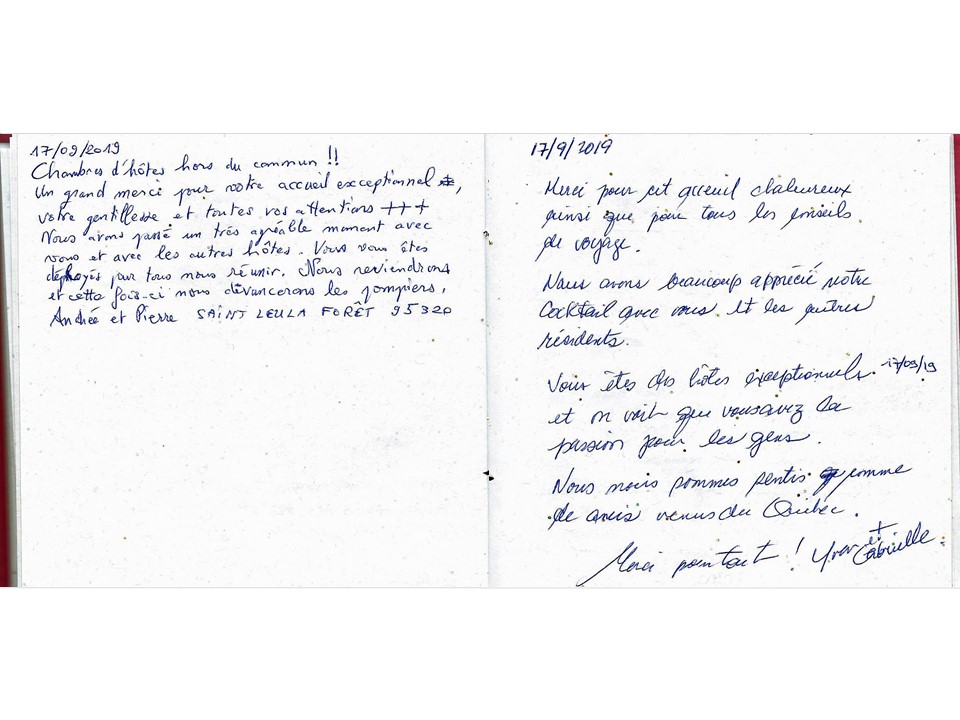 17/09/2019
Chambres d'hôtes hors du commun !!
Un grand merci pour votre accueil exceptionnel,
votre gentillesse et toutes vos attentions +++
Nous avons passé un très agréable moment avec
vous et avec les autres hôtes. Vous vous êtes
déployés pour tous nous réunir. Nous reviendrons
et cette fois-ci nous devancerons les pompiers.
Andrée et Pierre SAINT LEU LA FORÊT 95320
17/9/2019
Merci pour cet acueil chaleureux
ainsi que pour tous les conseils
de voyage.
Nous avons beaucoup apprécié notre
Cocktail avec vous et les autres
résidents.
Vous êtes des hôtes exceptionnels. 17/09/19
et on voit que vous avez la
passion pour les gens.
Nous nous sommes sentis comme
de amis venus du Québec.
Merci pour tout ! Yvan et Gabrielle.